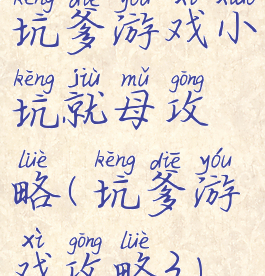 kēng diē yóu xì xiǎo
坑爹游戏小
kēng jiù mǔ gōng
坑就母攻
lüè kēng diē yóu
略(坑爹游
xì gōng lüè
戏攻略3)